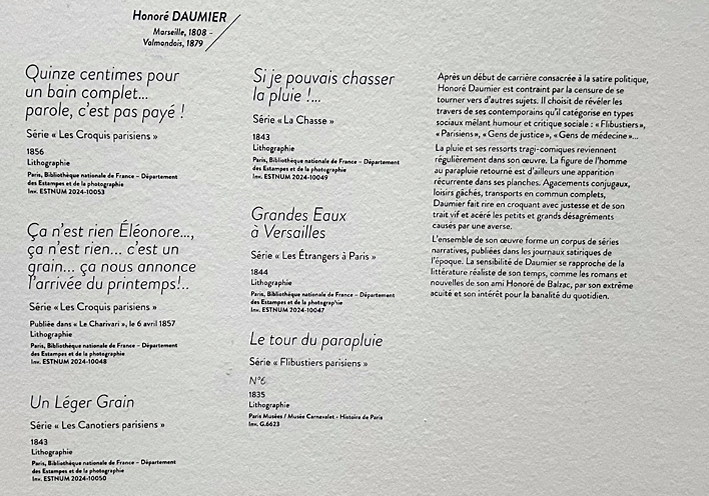 Honoré DAUMIER
Marseille, 1808 -
Valmondois, 1879
Quinze centimes pour
un bain complet...
parole, c'est pas payé !
Série « Les Croquis parisiens »
1856
Lithographie
Paris, Bibliothèque nationale de France – Département
des Estampes et de la photographie
Inv. ESTNUM 2024-10053
Ça n'est rien Éléonore...,
ça n'est rien... c'est un
grain... ça nous annonce
l'arrivée du printemps!..
Série « Les Croquis parisiens »
Publiée dans « Le Charivari », le 6 avril 1857
Lithographie
Paris, Bibliothèque nationale de France – Département
des Estampes et de la photographie
Inv. ESTNUM 2024-10048
Un Léger Grain
Série « Les Canotiers parisiens »
1843
Lithographie
Paris, Bibliothèque nationale de France – Département
des Estampes et de la photographie
Inv. ESTNUM 2024-10050
Si je pouvais chasser
la pluie !...
Série « La Chasse »
1843
Lithographie
Paris, Bibliothèque nationale de France – Département
des Estampes et de la photographie
Inv. ESTNUM 2024-10049
Grandes Eaux
à Versailles
Série « Les Étrangers à Paris »
1844
Lithographie
Paris, Bibliothèque nationale de France – Département
des Estampes et de la photographie
Inv. ESTNUM 2024-10047
Le tour du parapluie
Série « Flibustiers parisiens »
N°6
1835
Lithographie
Paris Musées / Musée Carnavalet - Histoire de Paris
Inv. G.6623
Après un début de carrière consacrée à la satire politique,
Honoré Daumier est contraint par la censure de se
tourner vers d'autres sujets. Il choisit de révéler les
travers de ses contemporains qu'il catégorise en types
sociaux mêlant humour et critique sociale : « Flibustiers »,
« Parisiens », « Gens de justice », « Gens de médecine »...
La pluie et ses ressorts tragi-comiques reviennent
régulièrement dans son œuvre. La figure de l'homme
au parapluie retourné est d'ailleurs une apparition
récurrente dans ses planches. Agacements conjugaux,
loisirs gâchés, transports en commun complets,
Daumier fait rire en croquant avec justesse et de son
trait vif et acéré les petits et grands désagréments
causés par une averse.
L'ensemble de son œuvre forme un corpus de séries
narratives, publiées dans les journaux satiriques de
l'époque. La sensibilité de Daumier se rapproche de la
littérature réaliste de son temps, comme les romans et
nouvelles de son ami Honoré de Balzac, par son extrême
acuité et son intérêt pour la banalité du quotidien.